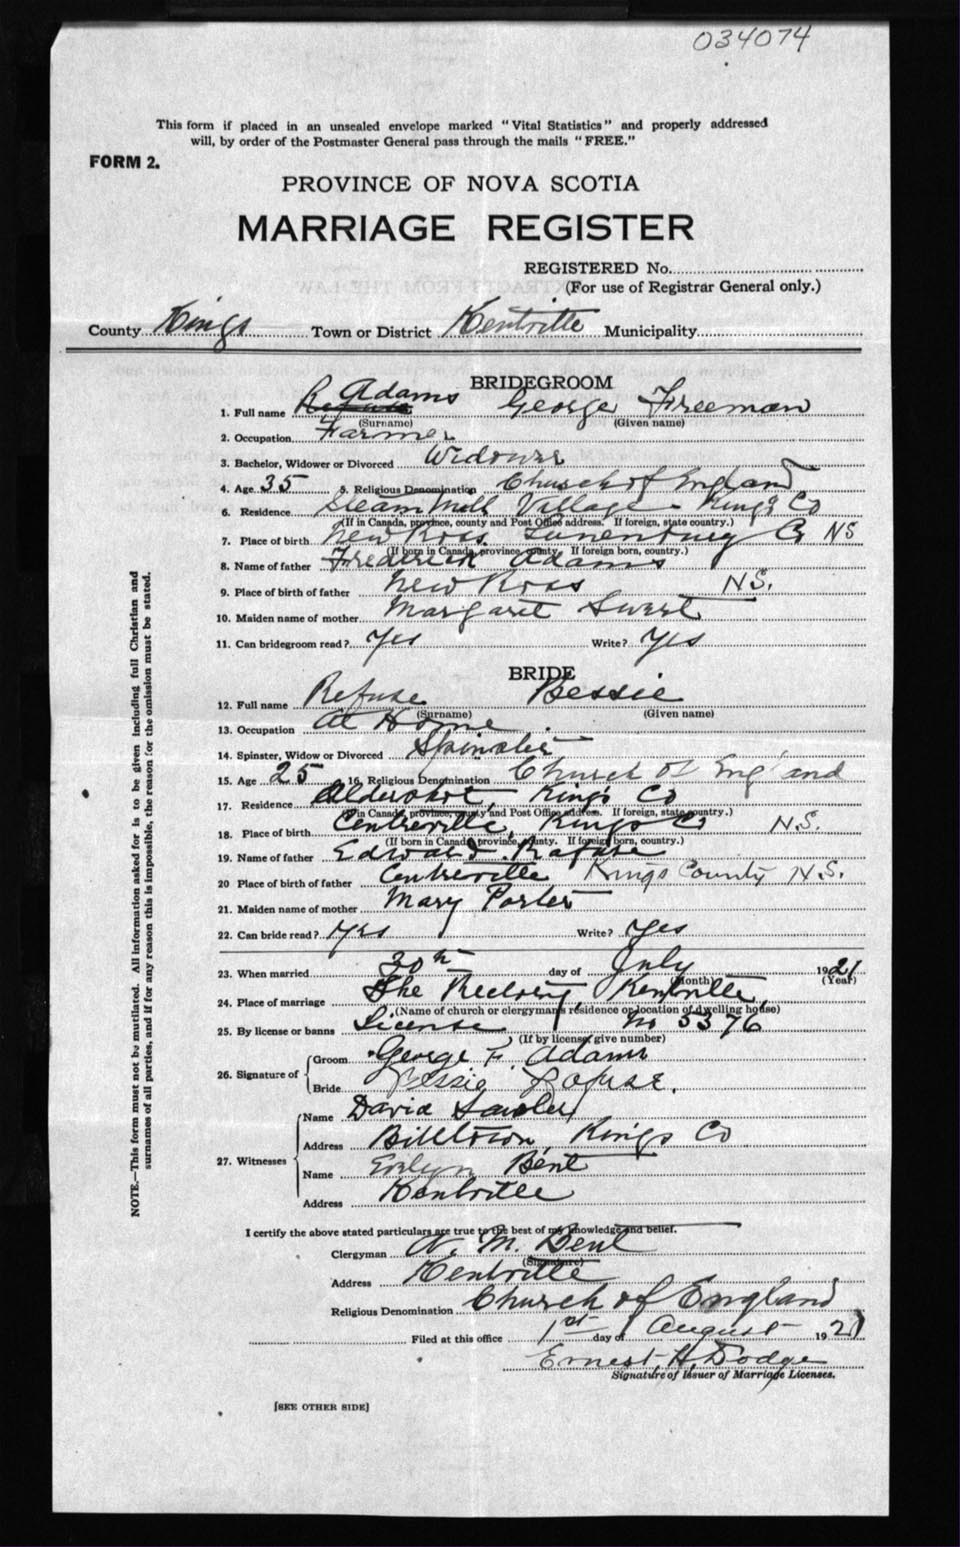 034074
This form if placed in an unsealed envelope marked "Vital Statistics" and properly addressed
will, by order of the Postmaster General pass through the mails "FREE."
FORM 2.
PROVINCE OF NOVA SCOTIA
MARRIAGE REGISTER
REGISTERED No.
(For use of Registrar General only.)
County Kings Town or District Kentville Municipality
BRIDEGROOM
1. Full name Adams George Freeman
(Surname) (Given name)
2. Occupation Farmer
3. Bachelor, Widower or Divorced Widower
4. Age 35 5. Religious Denomination Church of England
6. Residence Steam Mill Village Kings Co
(If in Canada, province, county and Post Office address. If foreign, state country.)
7. Place of birth New Ross Lunenburg Co NS
(If born in Canada, province, county. If foreign born, country.)
8. Name of father Frederick Adams
9. Place of birth of father New Ross N.S.
10. Maiden name of mother Margaret
11. Can bridegroom read? Yes Write? Yes
BRIDE
12. Full name Refuse Bessie
(Surname) (Given name)
13. Occupation At Home
14. Spinster, Widow or Divorced Spinster
15. Age 25 16. Religious Denomination Church of England
17. Residence Aldershot, Kings Co
(If in Canada, province, county and Post Office address. If foreign, state country.)
18. Place of birth Centreville, Kings Co N.S.
(If born in Canada, province, county. If foreign born, country.)
19. Name of father Edward Rafuse
20 Place of birth of father Centreville Kings County N.S.
21. Maiden name of mother Mary Porter
22. Can bride read? Yes Write? Yes
23. When married 30th day of July 1921
(Month) (Year)
24. Place of marriage The Rectory, Kentville,
(Name of church or clergyman's residence or location of dwelling house)
25. By license or banns License No 5376
(If by license, give number)
26. Signature of Groom George F. Adams
Bride Bessie Rafuse.
27. Witnesses Name David
Address Billtown, Kings Co
Name Evelyn Bent
Address Kentville
I certify the above stated particulars are true to the best of my knowledge and belief.
Clergyman A. M. Bent
(Signature)
Address Kentville
Religious Denomination Church of England
Filed at this office 1st day of August 1921
Ernest H. Dodge
Signature of Issuer of Marriage Licenses.
[SEE OTHER SIDE]
NOTE.—This form must not be mutilated. All information asked for is to be given including full Christian and
surnames of all parties, and if for any reason this is impossible, the reason for the omission must be stated.